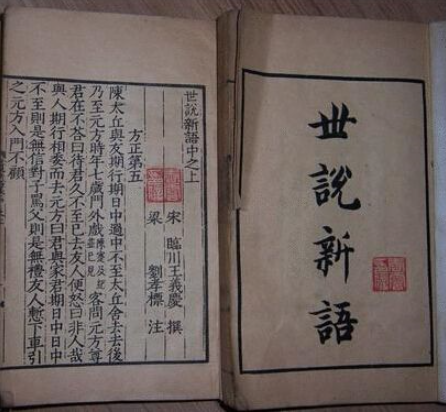 世說新語
世說新語中之上
宋 臨川王義慶 撰
梁 劉孝標 注
方正第五
陳太丘與友期行期日中過中不至太丘舍去去後
乃至元方時年七歲門外戲陳寔及紀並已見客問元方尊
君在不答曰待君久不至已去友人便怒曰非人哉
與人期行相委而去元方曰君與家君期日中日中
不至則是無信對子罵父則是無禮友人慚下車引
之元方入門不顧